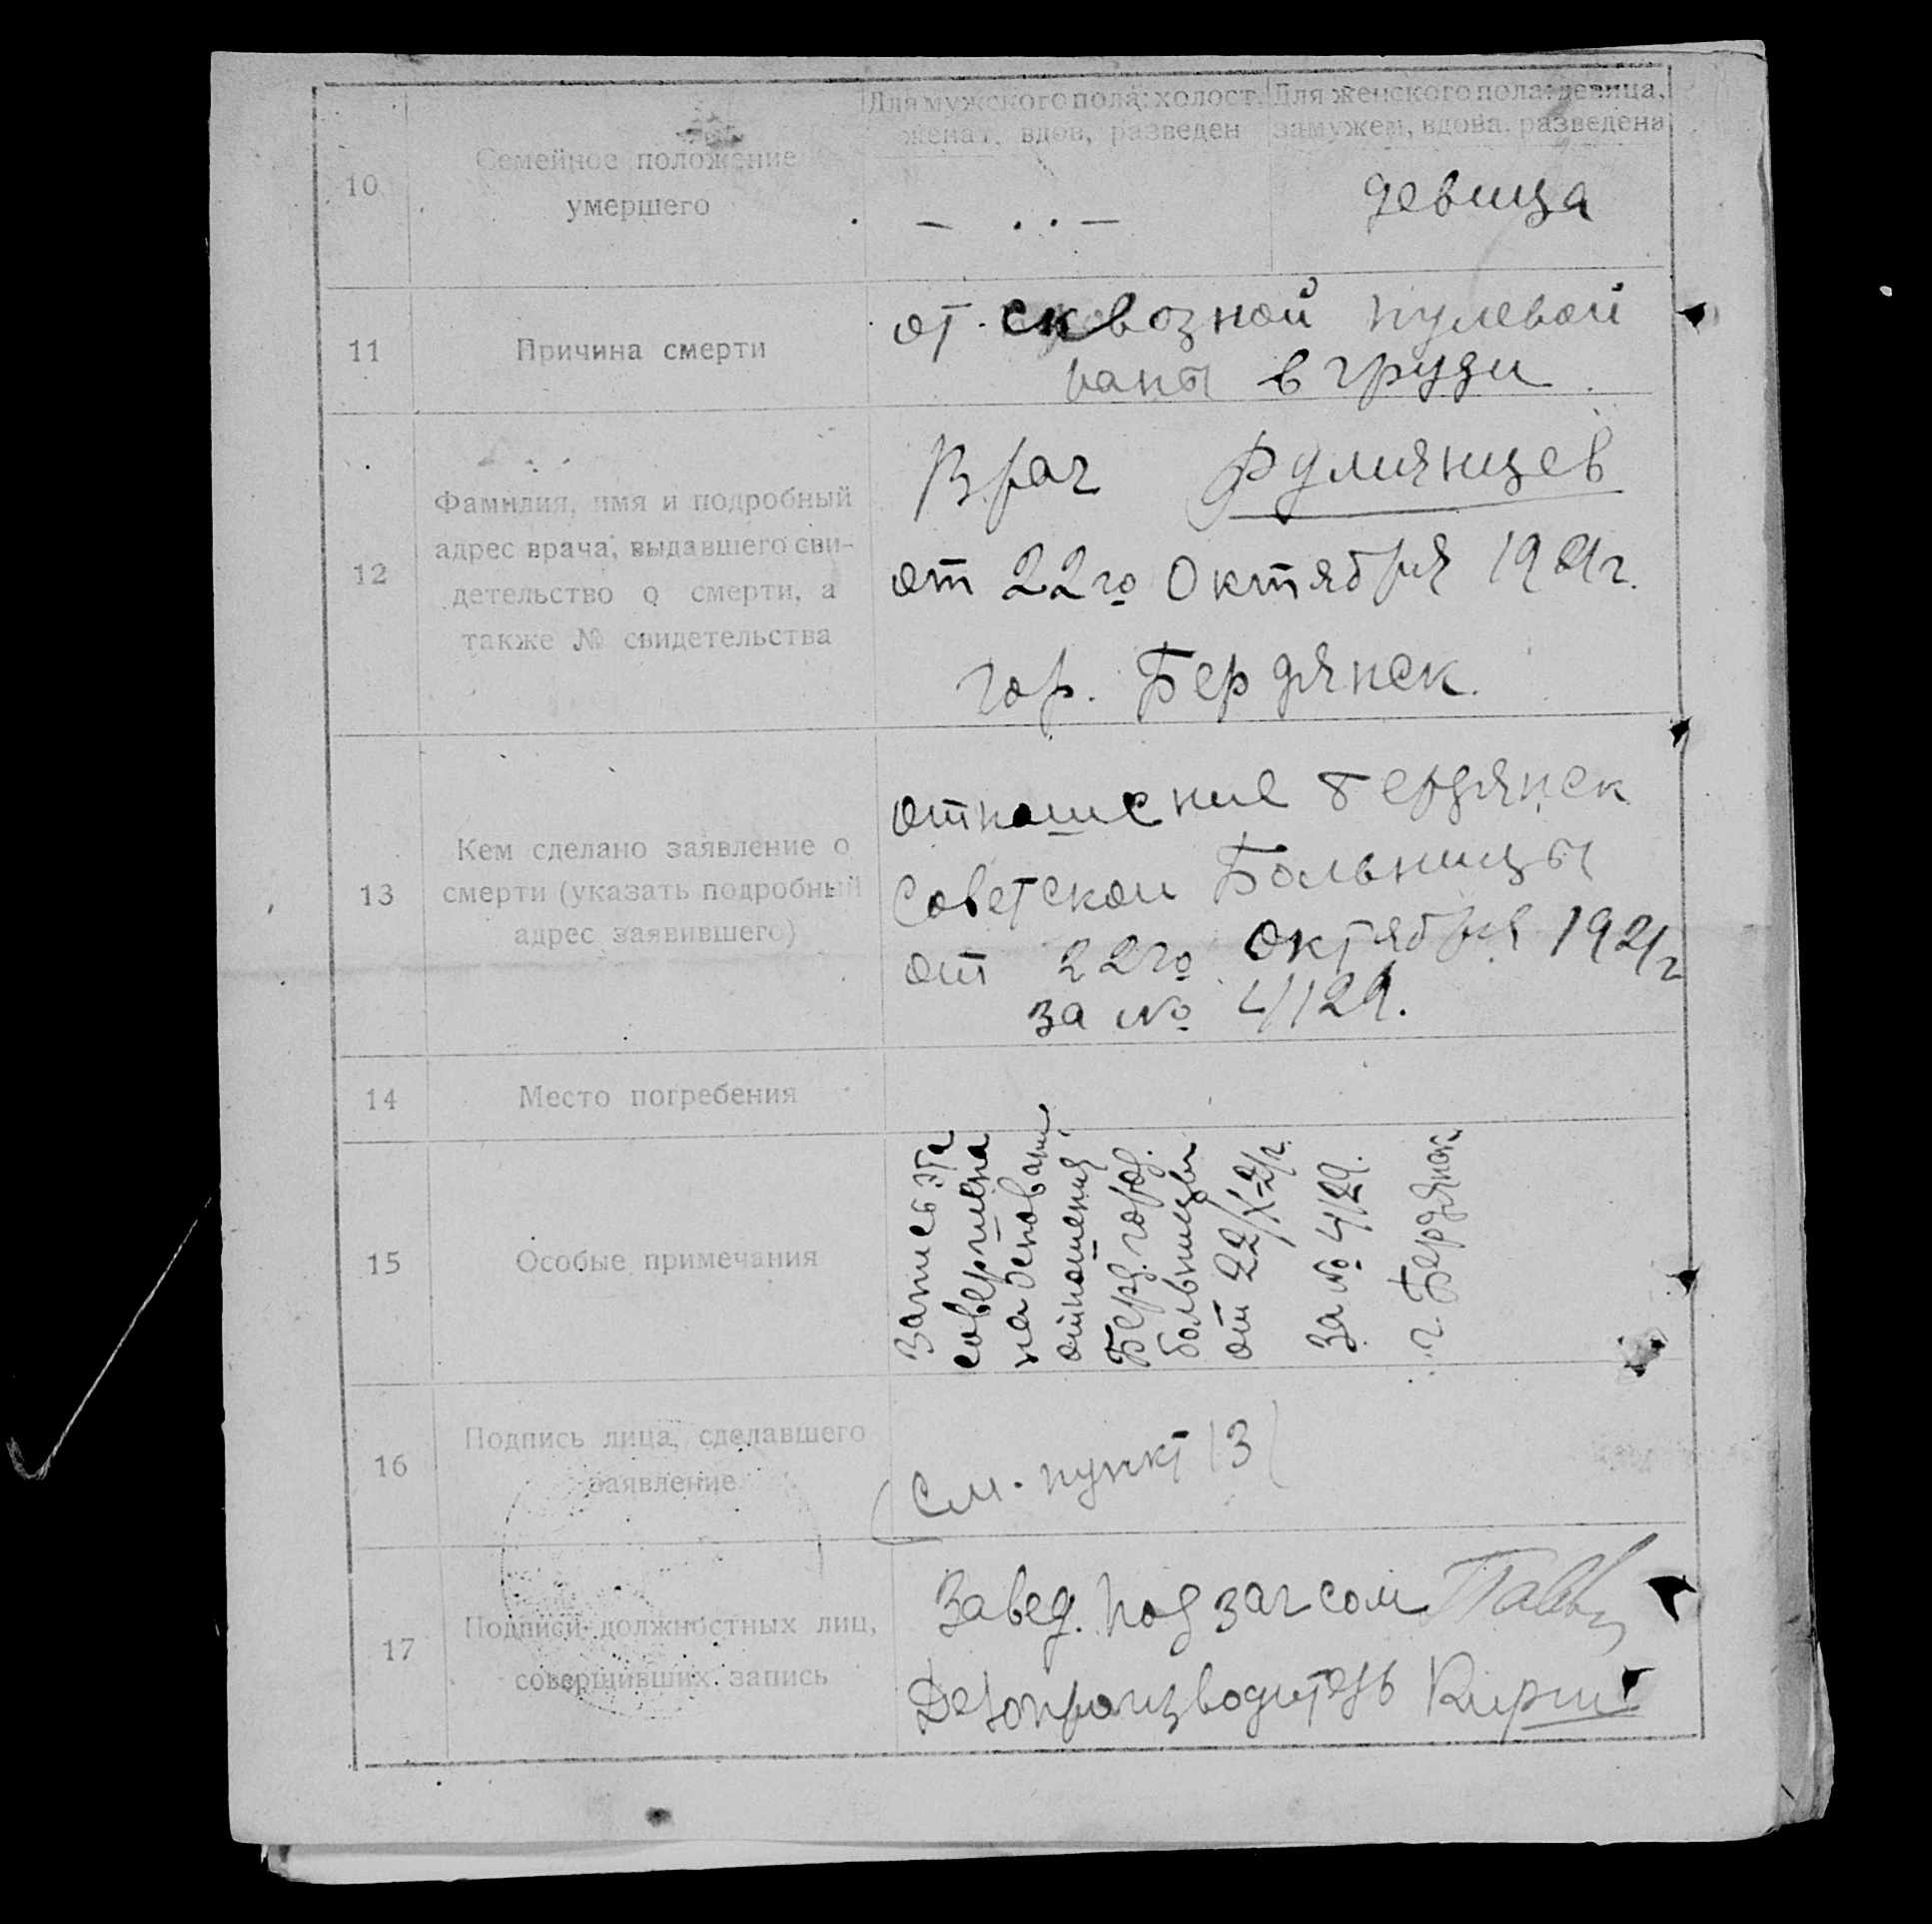 10
Семейное положение
умершего
Для мужского пола: холост,
женат, вдов, разведен
Для женского пола: девица,
замужем, вдова, разведена
девица
11
Причина смерти
от сквозной пулевой
раны в груди
12
Фамилия, имя и подробный
адрес врача, выдавшего сви-
детельство о смерти, а
также № свидетельства
Врач Румянцев
от 22го Октября 1921г.
гор. Бердянск.
13
Кем сделано заявление о
смерти (указать подробный
адрес заявившего)
отношение Бердянск
Советской Больницы
от 22го Октября 1921г
за № 4129.
14
Место погребения
15
Особые примечания
Запись эта
совершена
на основании
отношения
Берд. город.
больницы
от 22/X-21г.
за № 4129.
г. Бердянск
16
Подпись лица, сделавшего
заявление
(См. пункт 13)
17
Подписи должностных лиц,
совершивших запись
Завед. подзагсом
Делопроизводитель